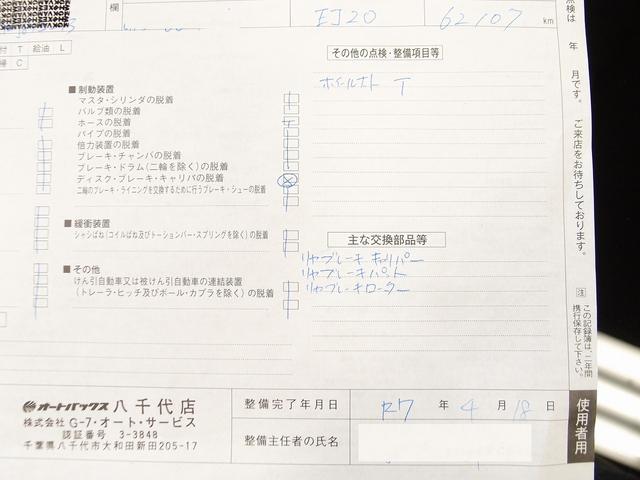 欄
EJ20
62107 km
付 T 給油 L
帰 C
点検は 年 月です。 ご来店をお待ちしております。
その他の点検・整備項目等
ホイールナット T
■ 制動装置
マスタ・シリンダの脱着
バルブ類の脱着
ホースの脱着
パイプの脱着
倍力装置の脱着
ブレーキ・チャンバの脱着
ブレーキ・ドラム(二輪を除く)の脱着
ディスク・ブレーキ・キャリパの脱着
二輪のブレーキ・ライニングを交換するために行うブレーキ・シューの脱着
■ 緩衝装置
シャシばね(コイルばね及びトーションバー・スプリングを除く)の脱着
■ その他
けん引自動車又は被けん引自動車の連結装置
(トレーラ・ヒッチ及びボール・カプラを除く)の脱着
主な交換部品等
リヤブレーキキャリパー
リヤブレーキパット
リヤブレーキローター
注 この記録簿は、二年間携行保存して下さい。
オートバックス 八千代店
株式会社 G-7・オート・サービス
認証番号 3-3848
千葉県八千代市大和田新田205-17
整備完了年月日 R7 年 4 月 18 日
整備主任者の氏名
使用者用